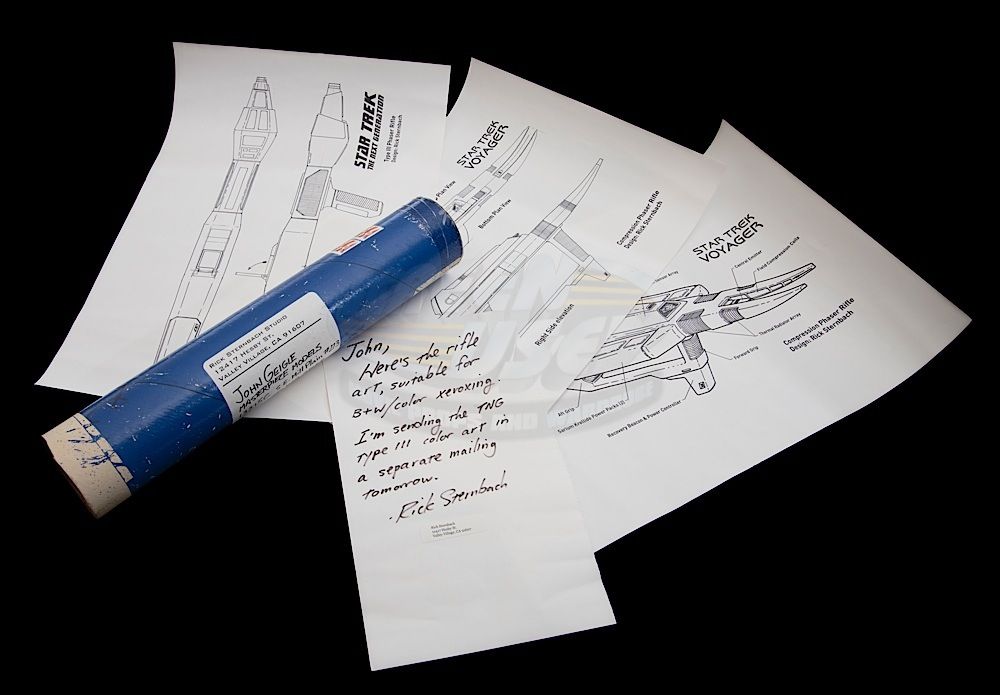 STAR TREK
THE NEXT GENERATION
Type III Phaser Rifle
Design: Rick Sternbach
STAR TREK
VOYAGER
Plan View
Bottom Plan View
Compression Phaser Rifle
Design: Rick Sternbach
Right Side elevation
STAR TREK
VOYAGER
Sensor Array
Central Emitter
Field Compression Coils
Thermal Radiator Array
Forward Grip
Compression Phaser Rifle
Design: Rick Sternbach
Aft Grip
Sarium Krellide Power Packs
Recovery Beacon & Power Controller
RICK STERNBACH STUDIO
12417 HESBY ST.
VALLEY VILLAGE, CA 91607
JOHN GEIGLE
MASTERPIECE MODELS
John,
Here's the rifle
art, suitable for
B+W/color xeroxing
I'm sending the TNG
Type III color art in
a separate mailing
tomorrow.
-Rick Sternbach
Rick Sternbach
12417 Hesby St.
Valley Village, CA 91607